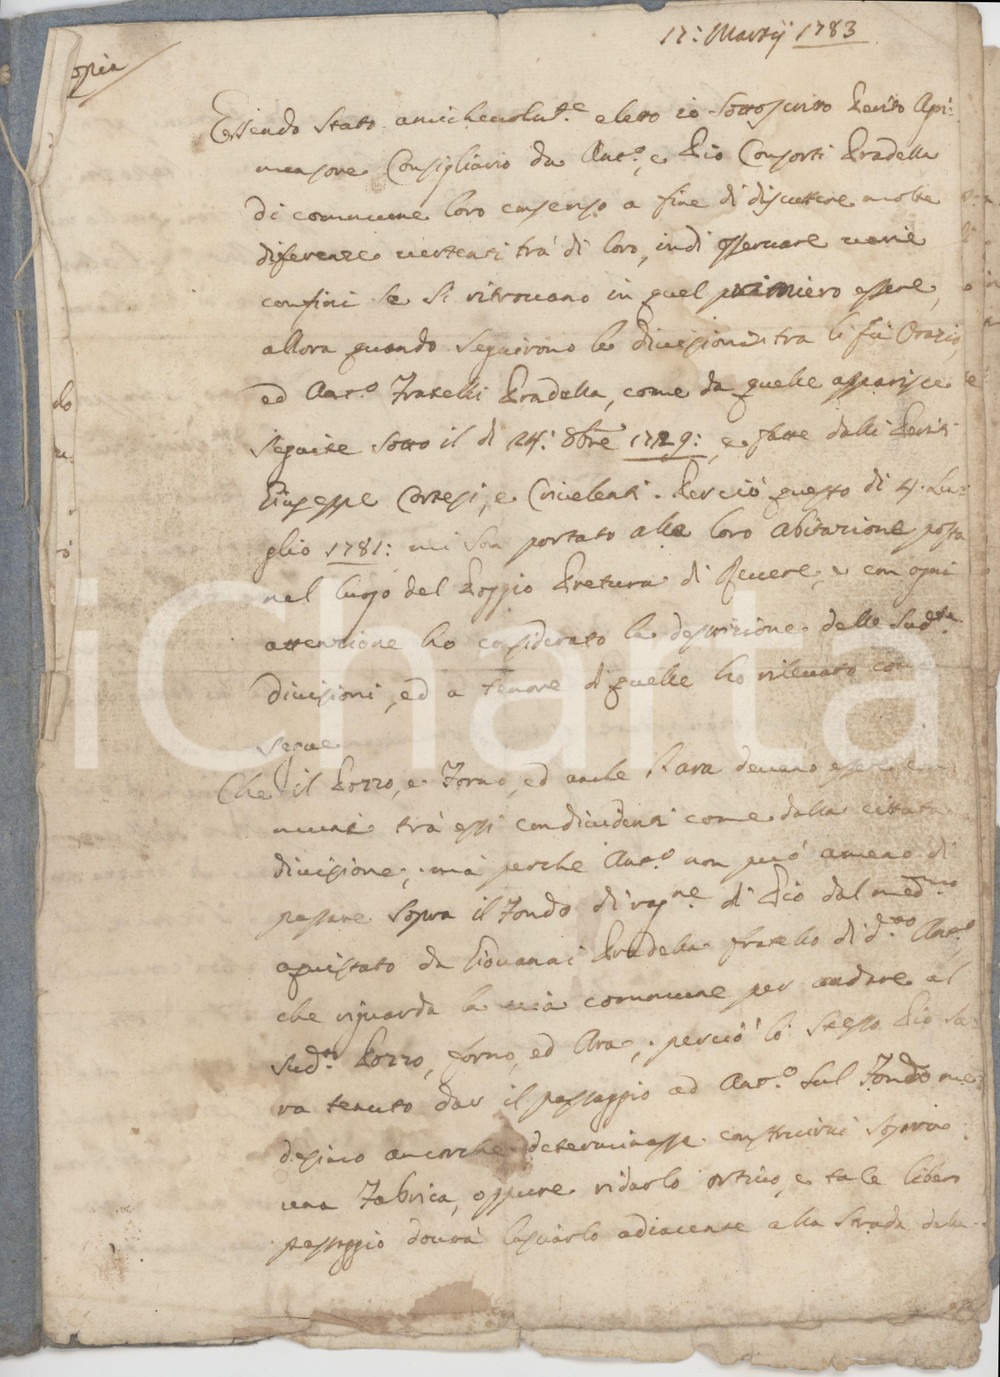 17: Martij 1783
opia
Essendo stato amichevolmte eletto io sottoscritto Perito Agri-
mensore Consigliario da Anto, e Pio Consorti Pradella
di commune loro consenso a fine di discutere molte
diferenze vertenti trà di loro, indi osservare varie
confini se si ritrovano in quel primiero essere,
allora quando seguirono le divisioni tra li fù Orazio,
ed Anto Fratelli Pradella, come da quelle apparisce
seguite sotto il dì 24: 8bre 1729:, e fatte dalli Periti
Giuseppe Cortesi, e Civelenti. Perciò questo dì 4. Lu-
glio 1781: mi son portato alle loro abitazione posta
nel luogo del Poggio Pretura di Revere, e con ogni
attenzione ho considerato le descrizione delle sudte
divisioni, ed a tenore di quelle ho rilevato come
segue
Che il Pozzo, e Forno, ed anche l'ara devono essere com
muni trà essi condividenti come dalla cittata
divisione; mà perche Anto non può ameno di
passare sopra il Fondo di ragne di Pio dal medmo
aquistato da Giovanni Pradella fratello di dto Anto,
che riguarda la via commune per andare al
sudo Pozzo, forno, ed Ara; perciò lo stesso Pio sa-
ra tenuto dar il passaggio ad Anto sul Fondo me-
desimo ancorche determinasse construirvi sopra
una Fabrica, oppure ridurlo ortivo, e tale libero
passaggio dovrà lasciarlo adiacente alla strada dalla
iCharta